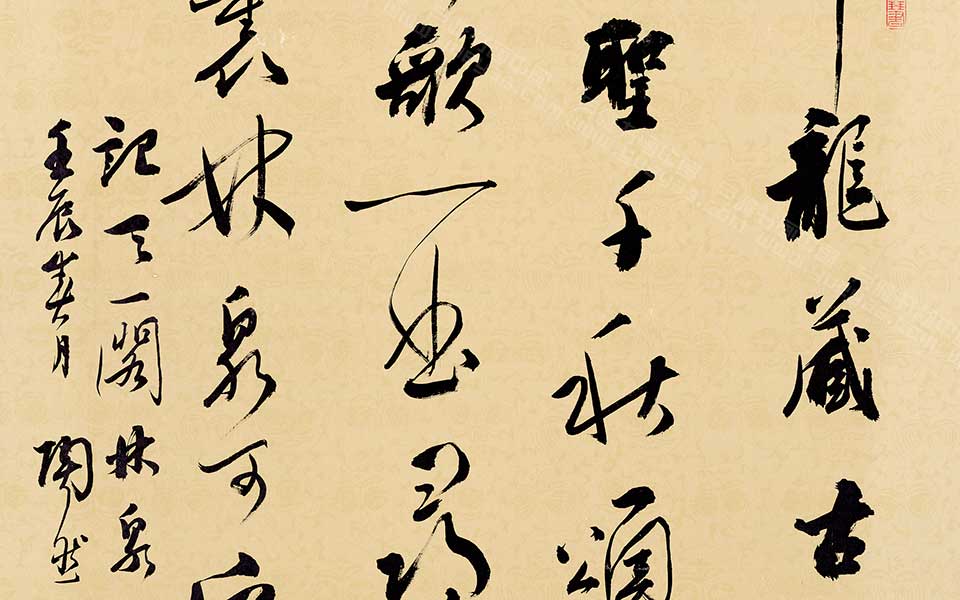 龍藏古
聖千秋頌
歌一尋
裏林泉可
記天一閣林泉
壬辰春月 陶然